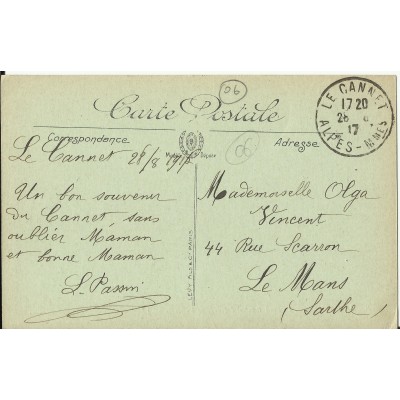 06
Carte Postale
LE CANNET
17 20
26 8
17
ALPES-MMES
Correspondance
Adresse
06
Le Cannet 26/8 1917
Un bon souvenir
du Cannet, sans
oublier Maman
et bonne Maman
L. Passin
Mademoiselle Olga
Vincent
44 Rue Scarron
Le Mans
(Sarthe)